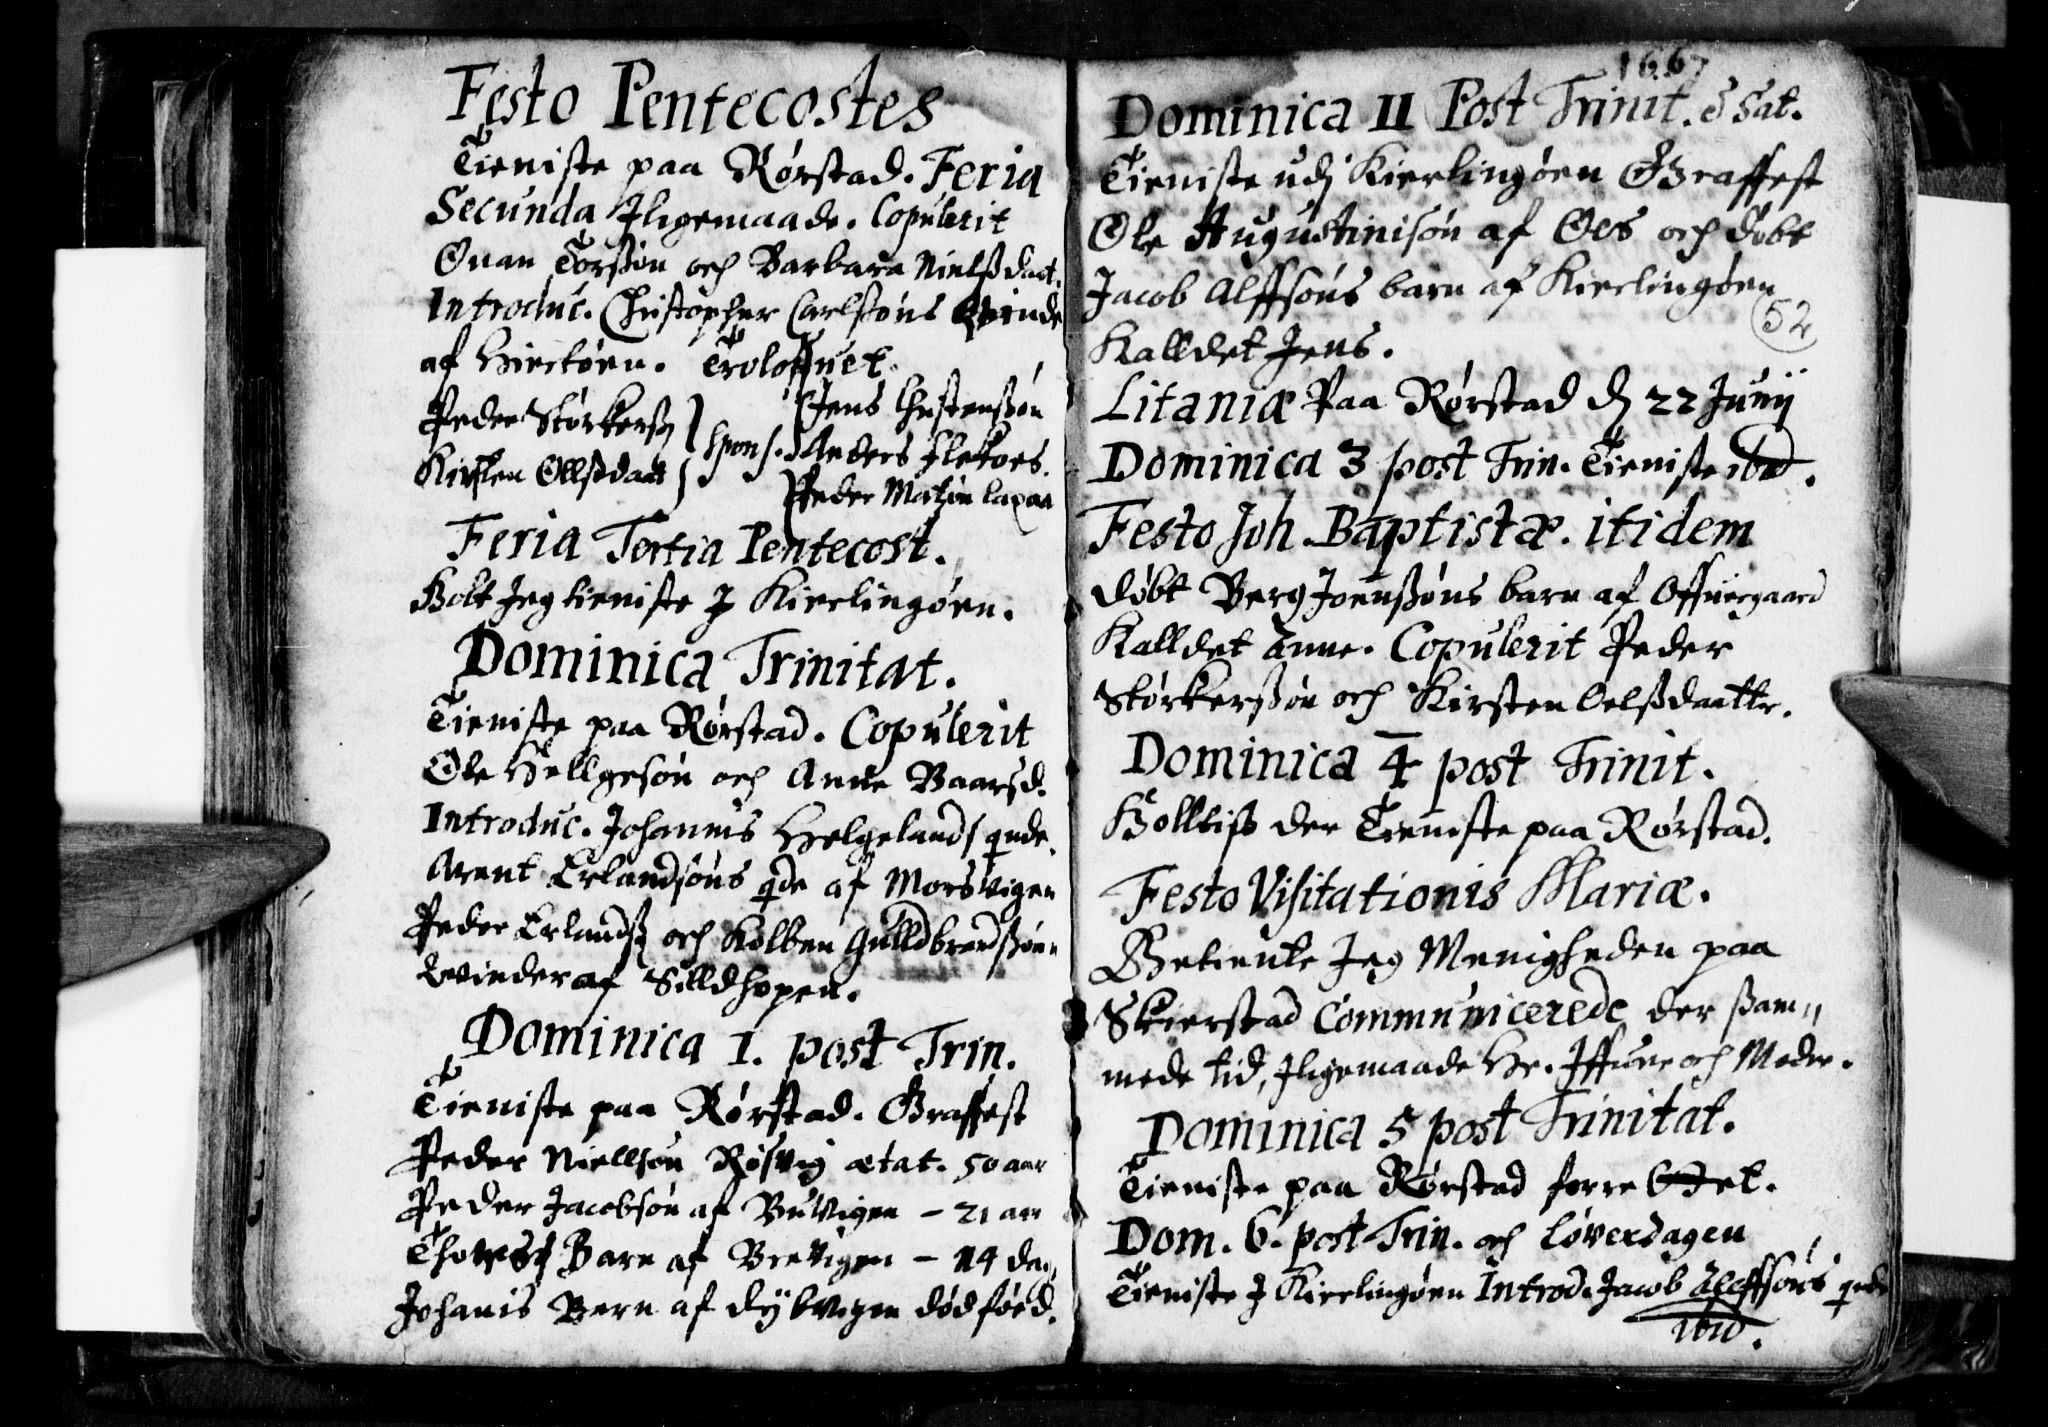 Festo Pentecostes
Tieniste paa Rørstad. Feria
Secunda Jligemaade. Copulerit
Onan Torßøn och Barbara Nielßdaat.
Introduc. Christopher Carlsøns Qvinde
af Hiertøen. Troloffuet.
Peder Størkerß
Kirsten Ollsdaat
spons.
Jens Christenßøn
Anders
Peder
Feria Tertia Pentecost.
Holt Jeg tieniste J Kierlingøen.
Dominica Trinitat.
Tieniste paa Rørstad. Copulerit
Ole Hellgesøn och Anne Baarsd.
Introduc. Johannis Helgelands qnde.
Arent Erlandsøns qde af Morsvigen
Peder Erlandß och Kolben Gulldbrandßøns
Qvinder af Silldhopen.
Dominica 1. post Trin.
Tieniste paa Rørstad. Graffest
Peder Niellsøn Røsvig ætat. 50 aar
Peder Jacobsøn af Buvigen – 21 aar
Barn af Brevigen – 14 dag
Johanis Barn af Dybvigen død føed.
1667
Dominica II Post Trinit. & Sat.
Tieniste udj Kierlingøen Graffest
Ole Augustinisøn af Oes och døbt
Jacob Alffsøns barn af Kierlingøen
52
Kalldet Jens.
Litaniæ Paa Rørstad d 22 Junij
Dominica 3 post Trin. Tieniste ibid.
Festo Joh. Baptistæ. itidem
døbt Berg Joenßøns barn af Offuergaard
Kalldet Anne. Copulerit Peder
Størkerßøn och Kirsten Oelßdaatter.
Dominica 4 post Trinit.
Holltis der Tieniste paa Rørstad.
Festo Visitationis Mariæ.
Betiente Jeg Menigheden paa
Skierstad Communicerede der ßam„
mede tid, Jligemaade Hr. Jffuer och Moder.
Dominica 5 post Trinitat.
Tieniste paa Rørstad forre
Dom. 6. post Trin. och Løverdagen
Tieniste J Kierlingøen Introd. Jacob Alffsøns qnde
ibid.